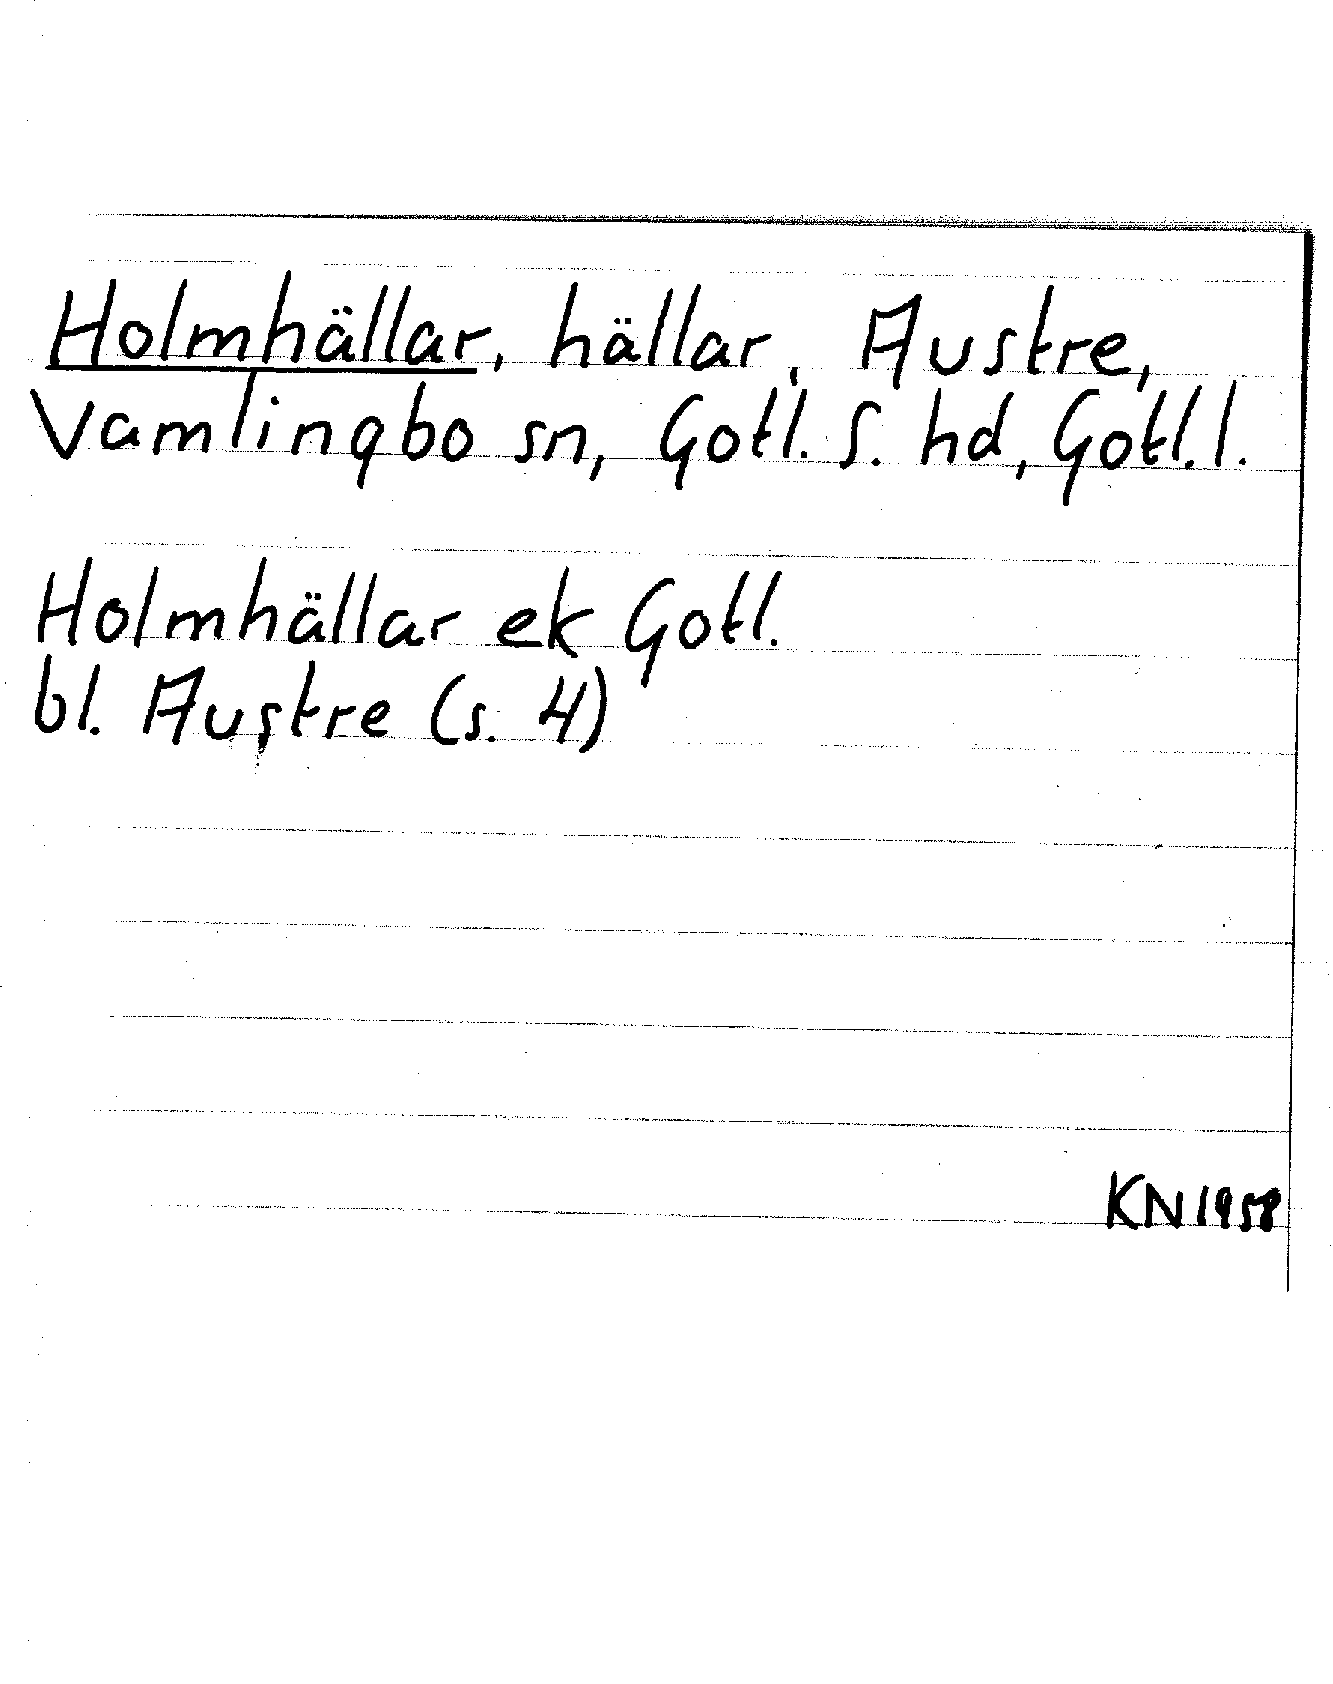 Holmhällar, hällar, Austre,
Vamlingbo sn, Gotl. S. hd, Gotl. l.
Holmhällar ek Gotl.
bl. Austre (s. 4)
KN 1958